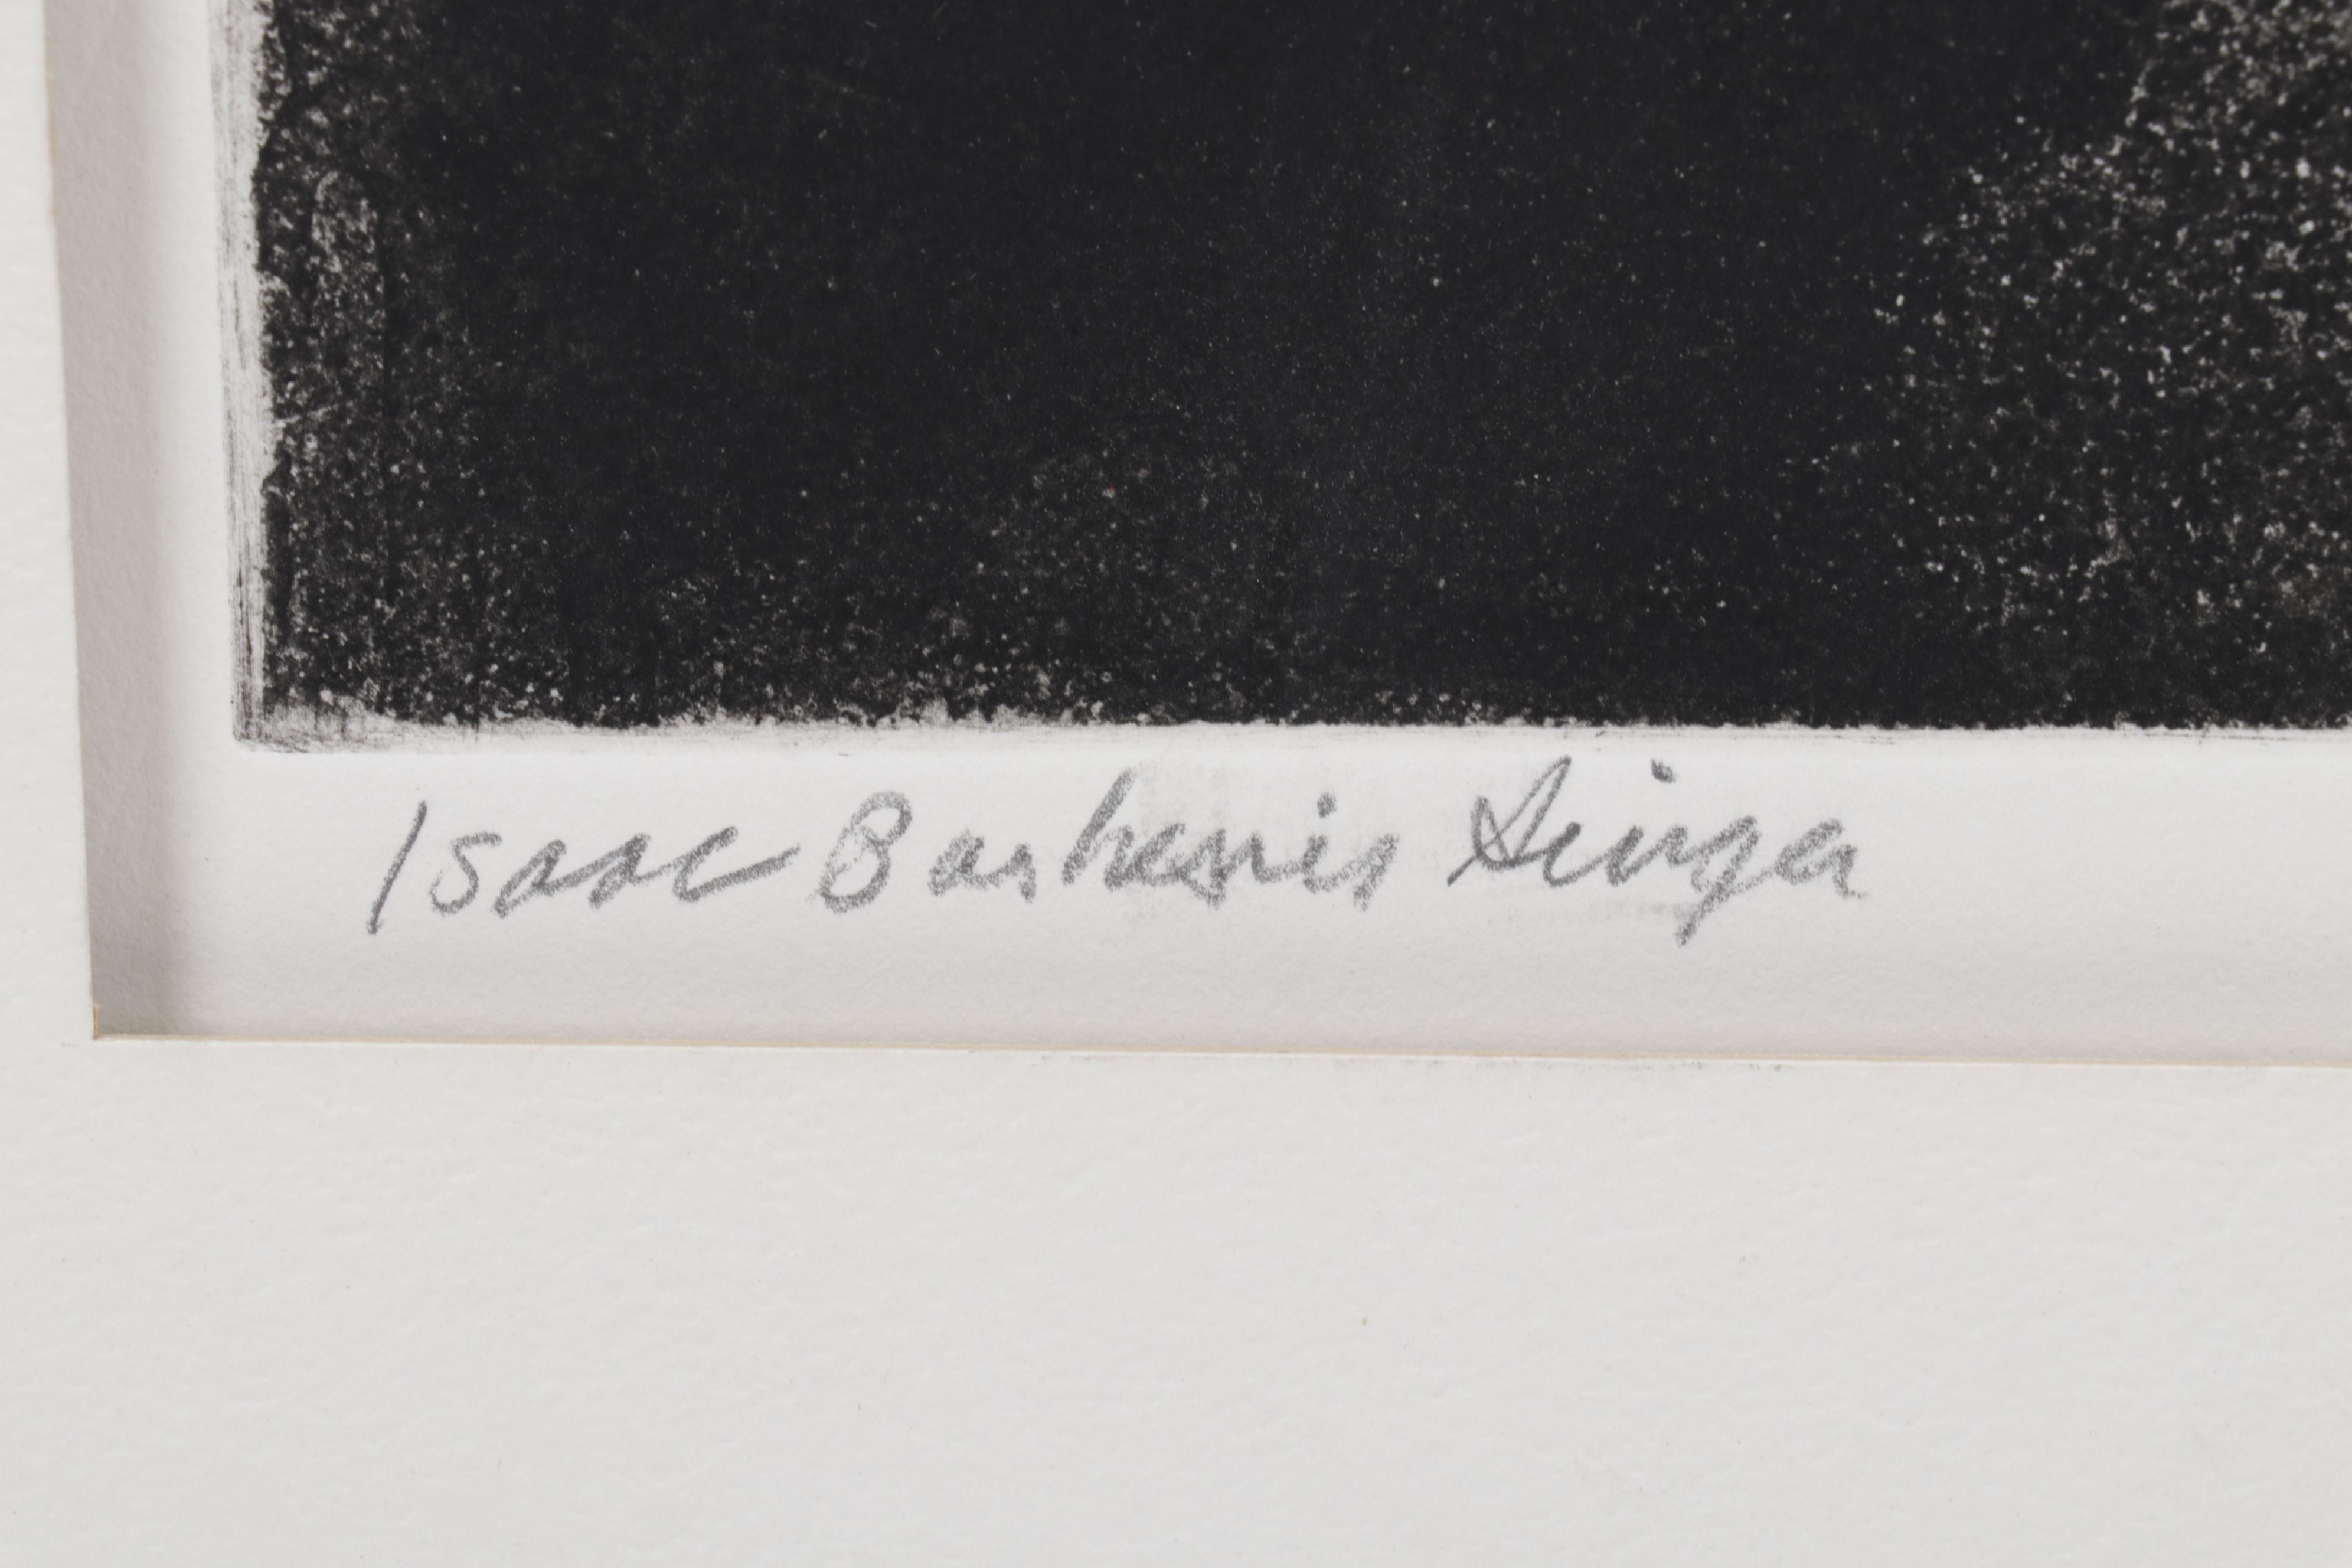 Isaac Bashevis Singer